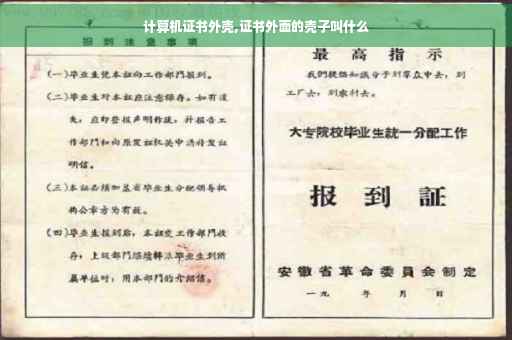 计算机证书外壳,证书外面的壳子叫什么
报到注意事项
(一)毕业生凭本証向工作部門报到。
(二)毕业生对本証应注意保存。如有遺
失,应即登报声明作废,并报告工
作部門和向原发証机关申請补发証
明信。
(三)本証必须加盖省毕业生分配领导机
构公章方为有效。
(四)毕业生报到后,本証交工作部門收
存;上级部門繼續轉派毕业生到所
属单位时,用本部門的介绍信。
最高指示
我們提倡知識分子到羣众中去,到
工厂去,到农村去。
大专院校毕业生統一分配工作
报到証
安徽省革命委員会制定
一九 年 月 日